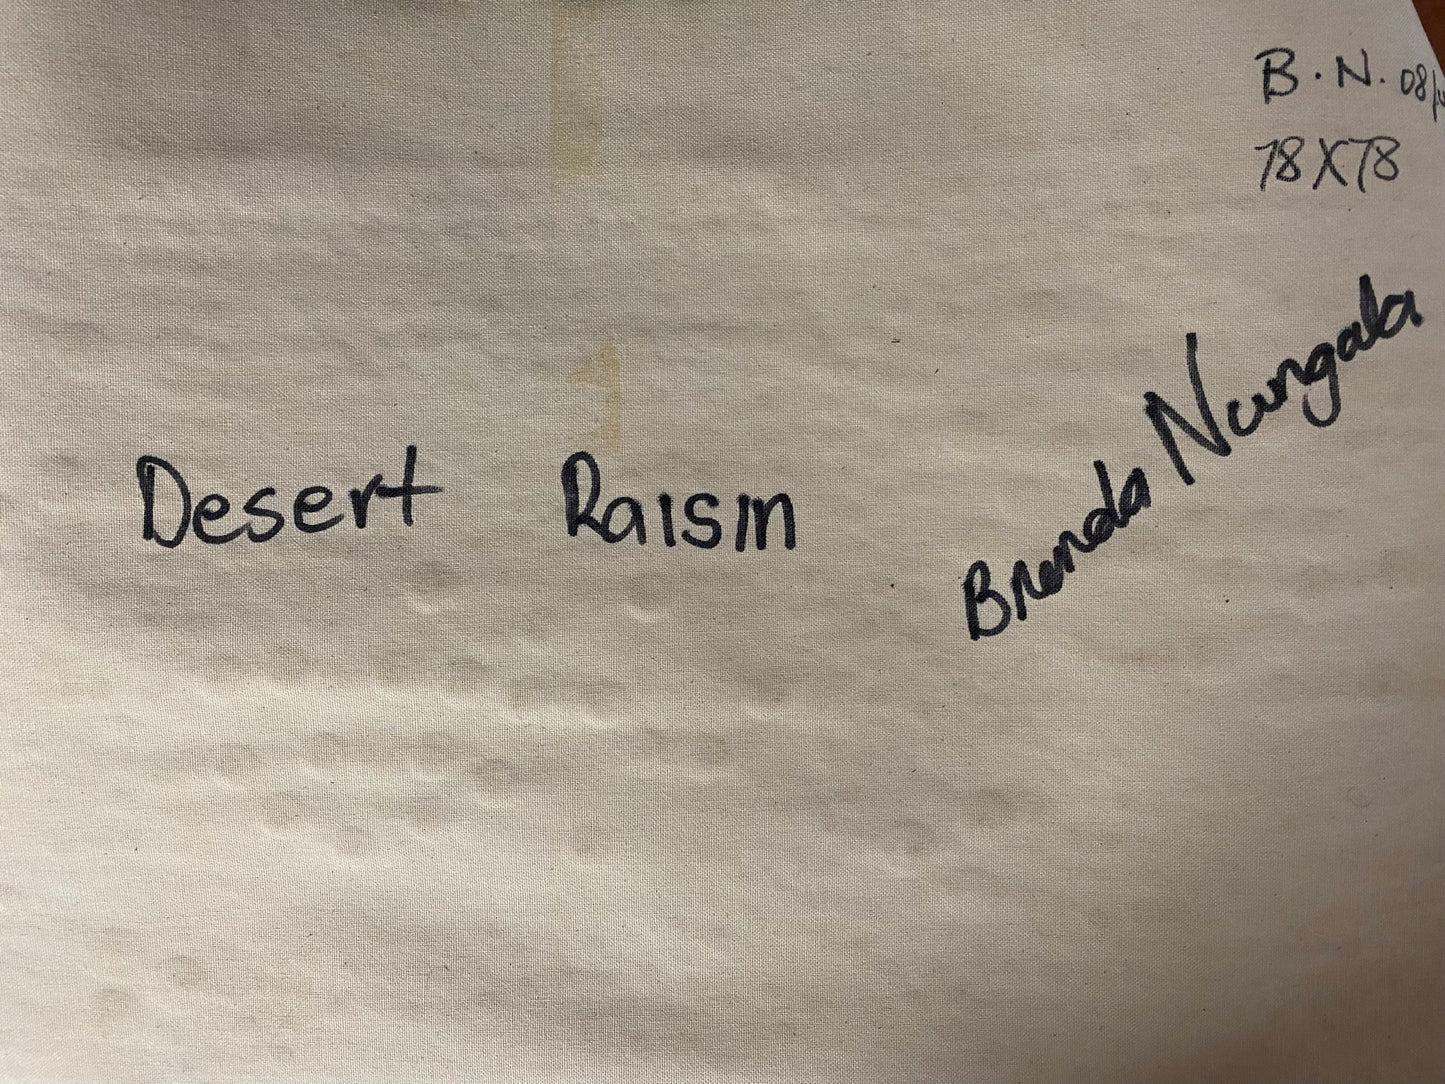 B.N. 08/
78X78
Desert Raisin
Brenda Nungala